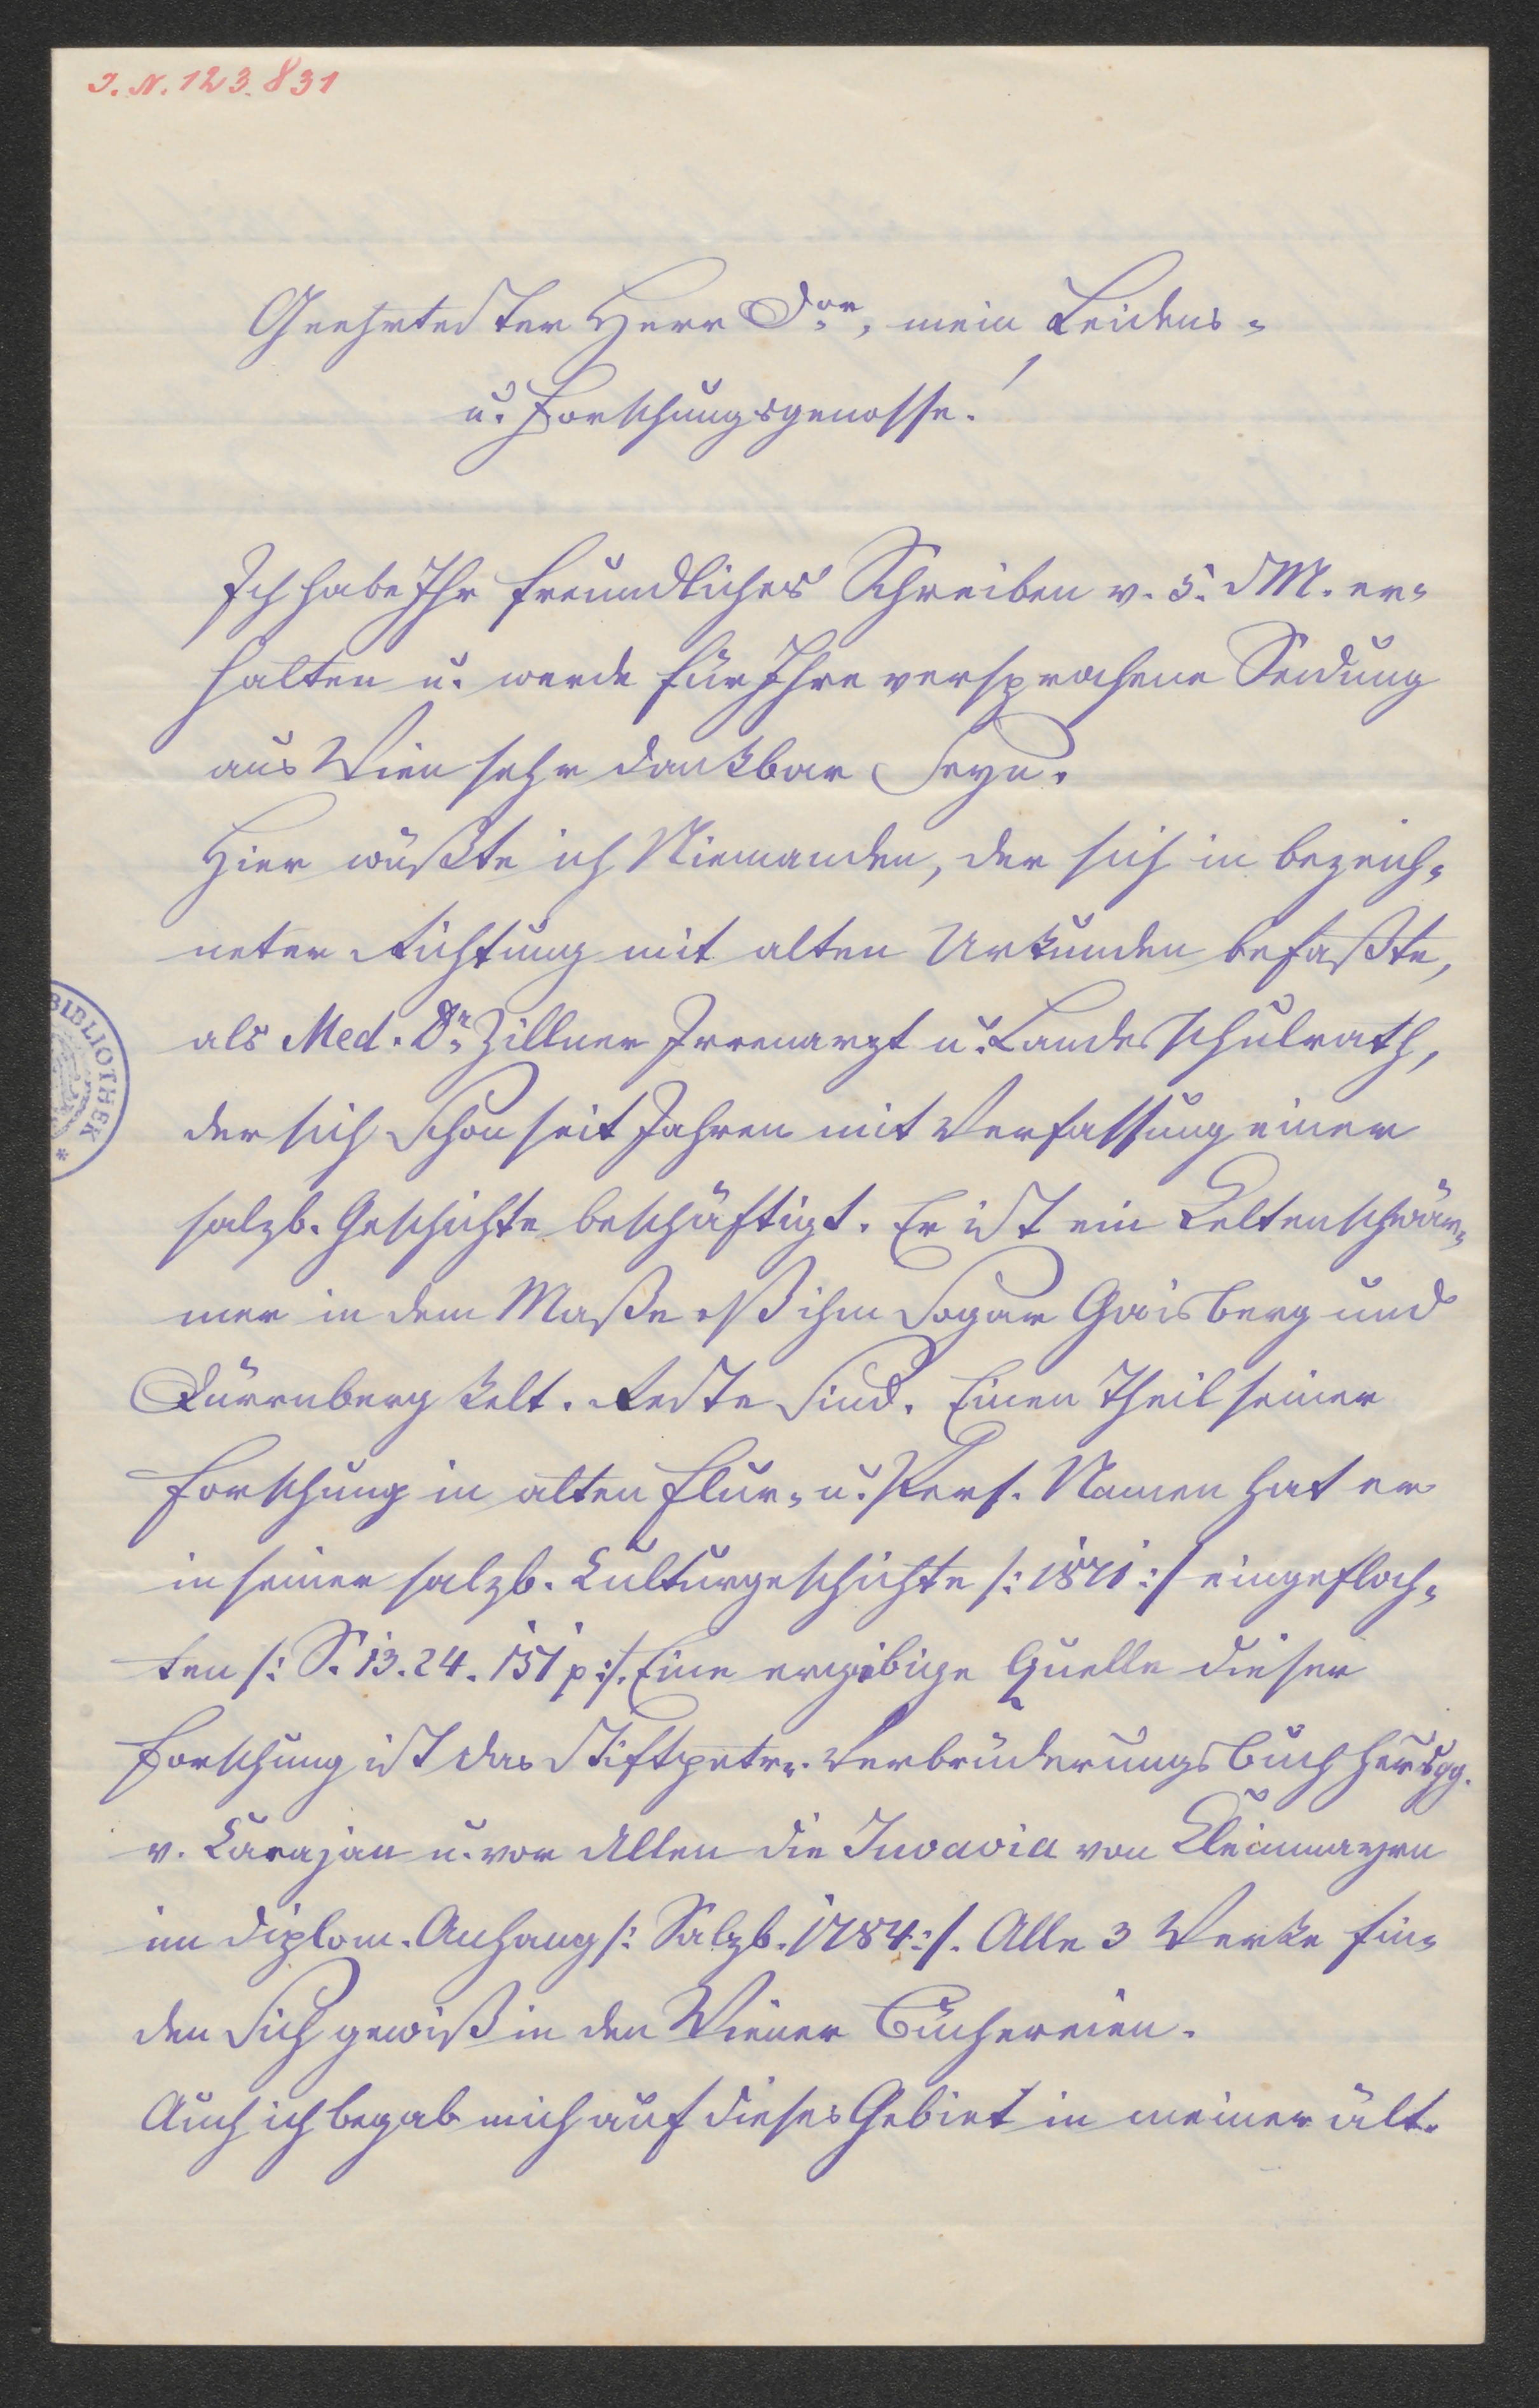 I. N. 123.831
Geehrtester Herr Dor, mein Leidens-
u. Forschungsgenosse!
Ich habe Ihr freundliches Schreiben v. 5. dM. er-
halten u. werde für Ihre versprochene Sendung
aus Wien sehr dankbar seyn.
Hier wüßte ich Niemanden, der sich in bezeich-
neter Richtung mit alten Urkunden befaßte,
als Med. Dr. Zillner Irrenarzt u. Landesschulrath,
der sich schon seit Jahren mit Verfassung einer
salzb. Geschichte beschäftigt. Er ist ein Keltenschwär-
mer in dem Maße, daß ihm sogar Gaisberg und
Dürrnberg kelt. Reste sind. Einen Theil seiner
Forschung in alten Flur- u. Pers. Namen hat er
in seiner salzb. Kulturgeschichte /: 1871 :/ eingefloch-
ten /: S. 13. 24. 151 p :/. Eine ergibige Quelle dieser
Forschung ist das Stiftpetr. Verbrüderungsbuch hersgg.
v. Karajan u. vor Allen die Juvavia von Kleinmayrn
im diplom. Anhang /: Salzb. 1784 :/. Alle 3 Werke fin-
den sich gewiß in den Wiener Büchereien.
Auch ich begab mich auf dieses Gebiet in meiner ält.
BIBLIOTHEK *